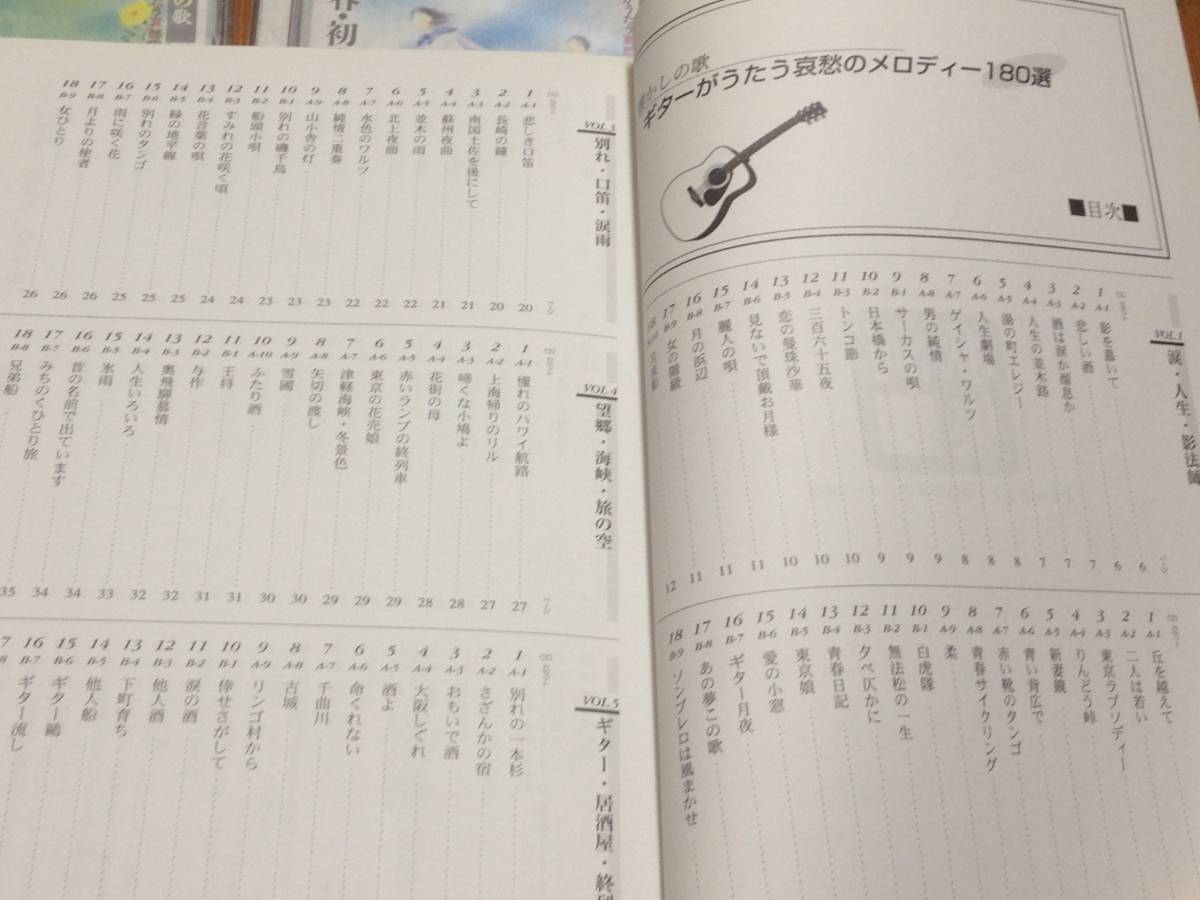 懐かしの歌
ギターがうたう哀愁のメロディー180選
■目次■
VOL.1
涙・人生・影法師
CD カセット ページ
1 A-1 影を慕いて 6
2 A-2 悲しい酒 6
3 A-3 酒は涙か溜息か 7
4 A-4 人生の並木路 7
5 A-5 湯の町エレジー 7
6 A-6 人生劇場 8
7 A-7 ゲイシャ・ワルツ 8
8 A-8 男の純情 8
9 B-1 サーカスの唄 9
10 B-2 日本橋から 9
11 B-3 トンコ節 9
12 B-4 三百六十五夜 10
13 B-5 恋の曼珠沙華 10
14 B-6 見ないで頂戴お月様 10
15 B-7 麗人の唄 11
16 B-8 月の浜辺 11
17 B-9 女の階級 11
18 12
CD カセット
1 A-1 丘を越えて
2 A-2 二人は若い
3 A-3 東京ラプソディー
4 A-4 りんどう峠
5 A-5 新妻鏡
6 A-6 青い背広で
7 A-7 赤い靴のタンゴ
8 A-8 青春サイクリング
9 A-9 柔
10 B-1 白虎隊
11 B-2 無法松の一生
12 B-3 夕べ仄かに
13 B-4 青春日記
14 B-5 東京娘
15 B-6 愛の小窓
16 B-7 ギター月夜
17 B-8 あの夢この歌
18 B-9 ソンブレロは風まかせ
VOL.3
別れ・口笛・涙雨
CD カセット ページ
1 A-1 悲しき口笛 20
2 A-2 長崎の鐘 20
3 A-3 南国土佐を後にして 21
4 A-4 蘇州夜曲 21
5 A-5 並木の雨 21
6 A-6 北上夜曲 22
7 A-7 水色のワルツ 22
8 A-8 純情二重奏 22
9 A-9 山小舎の灯 23
10 B-1 別れの磯千鳥 23
11 B-2 船頭小唄 23
12 B-3 すみれの花咲く頃 24
13 B-4 花言葉の唄 24
14 B-5 緑の地平線 25
15 B-6 別れのタンゴ 25
16 B-7 雨に咲く花 25
17 B-8 月よりの使者 26
18 B-9 女ひとり 26
26
VOL.4
望郷・海峡・旅の空
CD カセット ページ
1 A-1 憧れのハワイ航路 27
2 A-2 上海帰りのリル 27
3 A-3 啼くな小鳩よ 28
4 A-4 花街の母 28
5 A-5 赤いランプの終列車 29
6 A-6 東京の花売娘 29
7 A-7 津軽海峡・冬景色 29
8 A-8 矢切の渡し 30
9 A-9 雪國 30
10 A-10 ふたり酒 31
11 B-1 王将 31
12 B-2 与作 32
13 B-3 奥飛騨慕情 32
14 B-4 人生いろいろ 33
15 B-5 氷雨 34
16 B-6 昔の名前で出ています 34
17 B-7 みちのくひとり旅 35
18 B-8 兄弟船
VOL.5
ギター・居酒屋・終列
CD カセット
1 A-1 別れの一本杉
2 A-2 さざんかの宿
3 A-3 おもいで酒
4 A-4 大阪しぐれ
5 A-5 酒よ
6 A-6 命くれない
7 A-7 千曲川
8 A-8 古城
9 A-9 リンゴ村から
10 B-1 倖せさがして
11 B-2 涙の酒
12 B-3 他人酒
13 B-4 下町育ち
14 B-5 他人船
15 B-6 ギター鷗
16 B-7 ギター流し